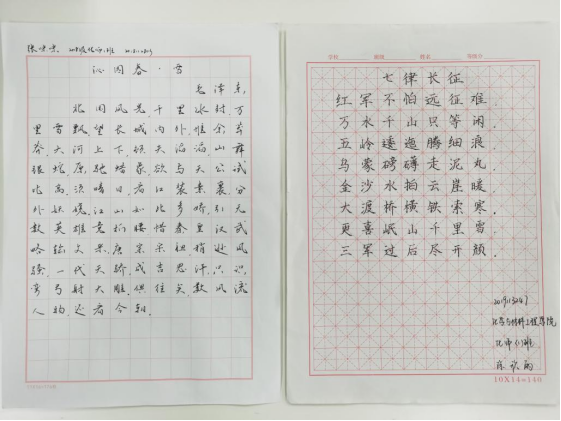 沁园春·雪
毛泽东
北国风光,千里冰封,万
里雪飘望长城内外惟余莽
莽.大河上下,顿失滔滔.山舞
银蛇,原驰蜡象.欲与天公试
比高.须晴日.看红装素裹,分
外妖娆.江山如此多娇.引无
数英雄竞折腰惜秦皇汉武
略输文采.唐宗宋祖.稍逊风
骚.一代天骄.成吉思汗.只识
弯弓射大雕.俱往矣.数风流
人物还看今朝.
学校 班级 姓名
七律长征
红军不怕远征难.
万水千山只等闲.
五岭逶迤腾细浪
乌蒙磅礴走泥丸.
金沙水拍云崖暖.
大渡桥横铁索寒.
更喜岷山千里雪.
三军过后尽开颜.
化学与材料工程学院
10X14=140